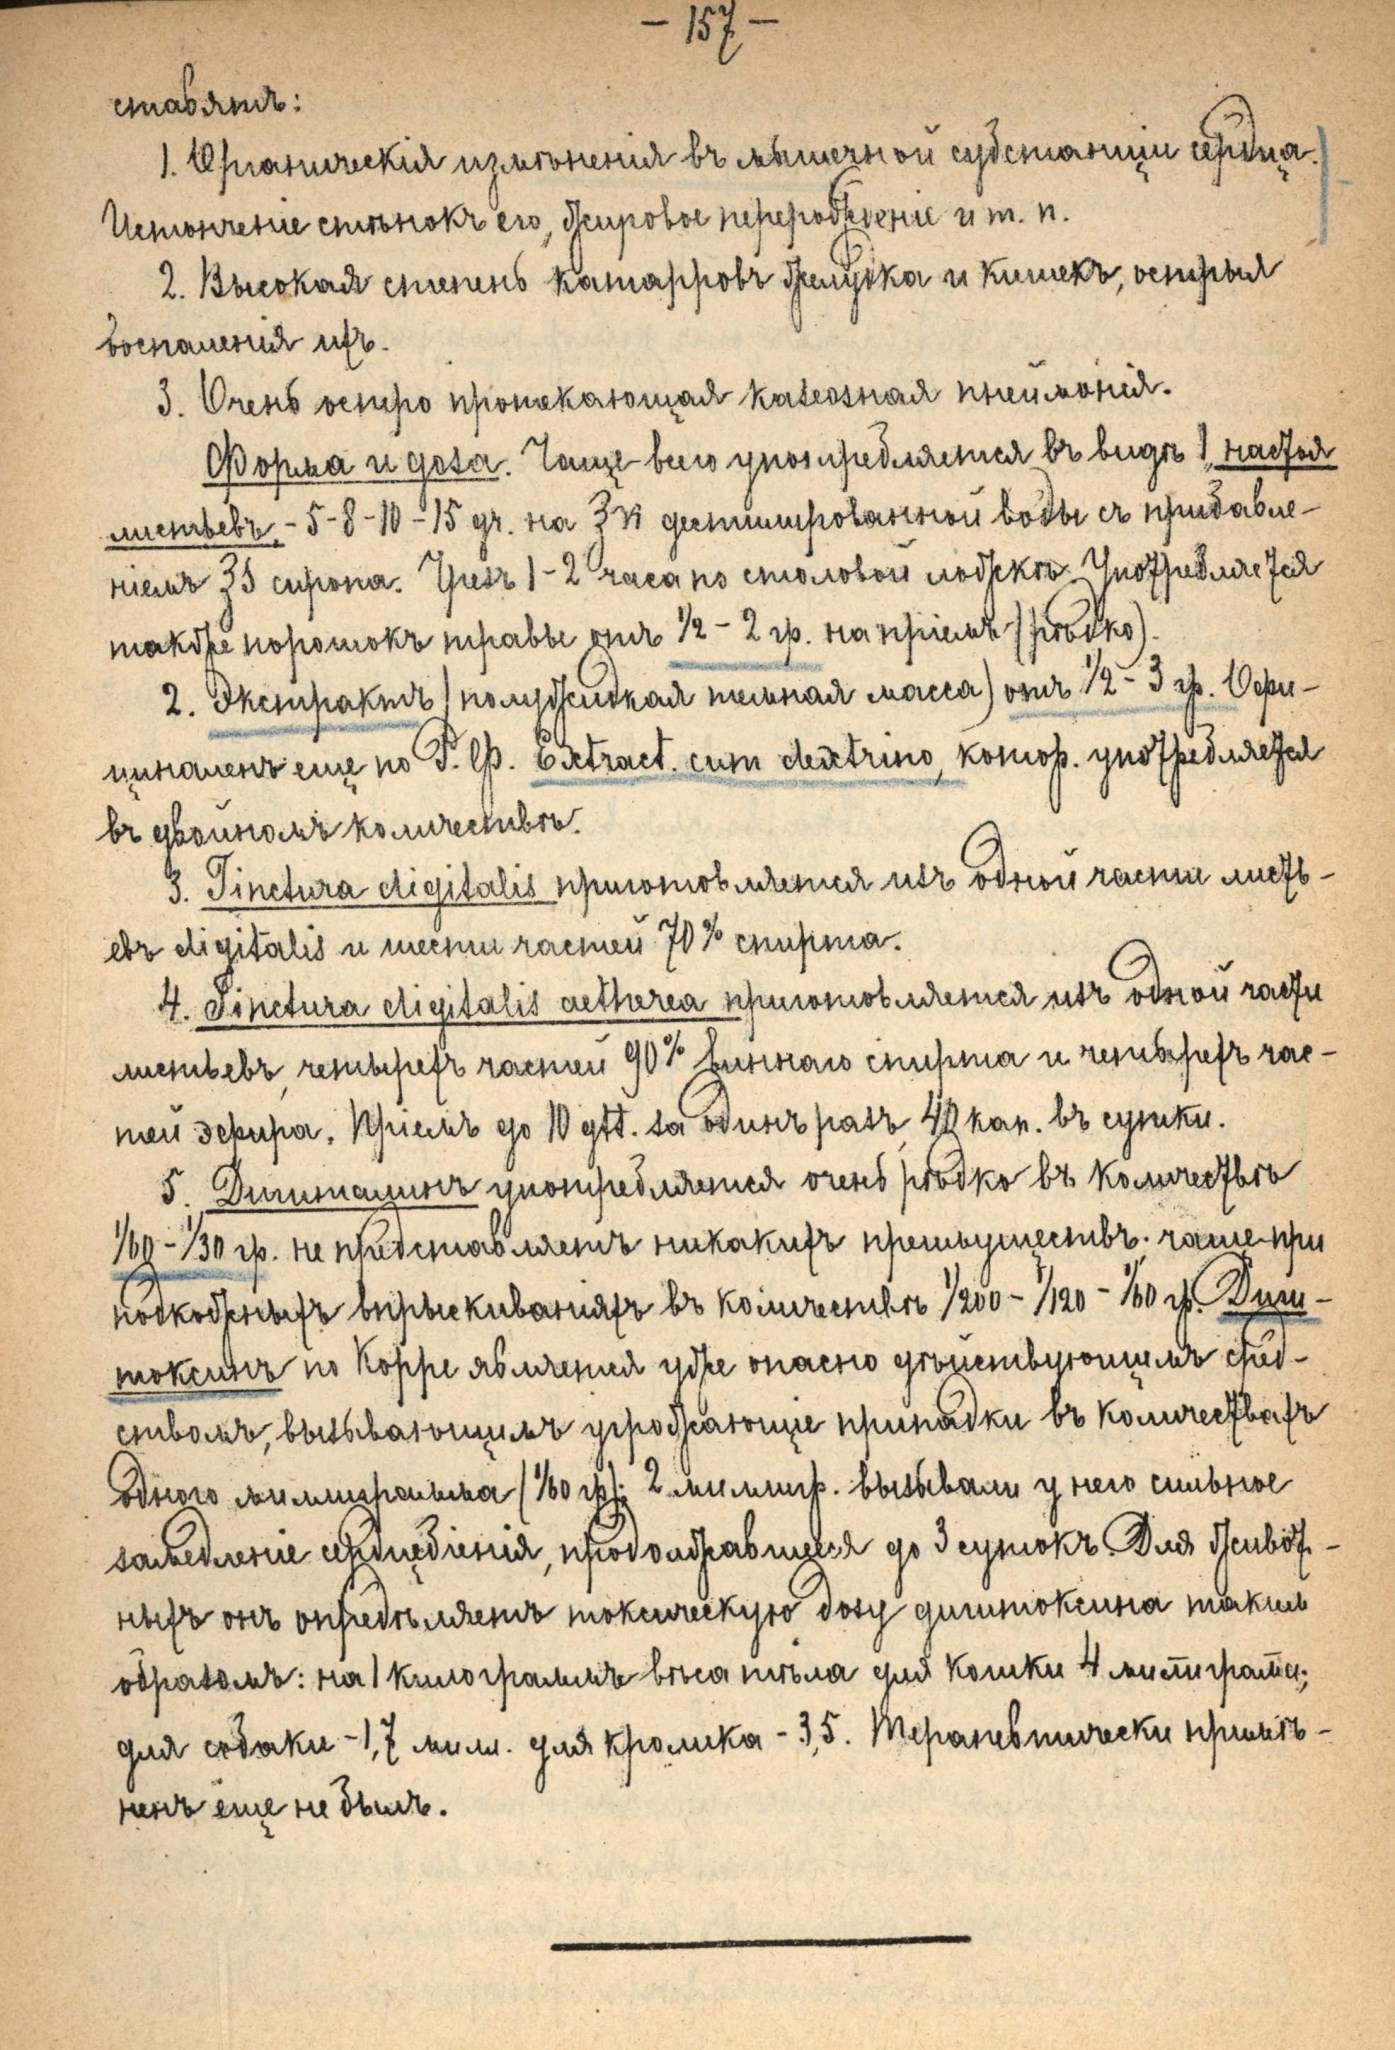 — 157 —
ставятъ:
1. Органическія измѣненія въ мышечной субстанціи сердца.
Истонченіе стѣнокъ его, жировое перерожденіе и т. п.
2. Высокая степень катарровъ желудка и кишекъ, острыя
воспаленія ихъ.
3. Очень остро протекающая казеозная пнеймонія.
Форма и доза. Чаще всего употребляется въ видѣ 1, настоя
листьевъ. – 5–8–10–15 gr. на ℥vi дестиллированной воды съ прибавле–
ніемъ ℥j сиропа. Чрезъ 1–2 часа по столовой ложкѣ. Употребляется
также порошокъ травы отъ 1/2 – 2 гр. на пріемъ (рѣдко).
2. Экстрактъ (полужидкая тѣльная масса) отъ 1/2 – 3 гр. Офи–
циналенъ еще по Р. Ф. Extract. cum dextrino, котор. употребляется
въ двойномъ количествѣ.
3. Tinctura digitalis приготовляется изъ одной части листь–
евъ digitalis и шести частей 70% спирта.
4. Tinctura digitalis aetherea приготовляется изъ одной части
листьевъ, четырехъ частей 90% виннаго спирта и четырехъ час–
тей эфира. Пріемъ до 10 gtt. за одинъ разъ, 40 кап. въ сутки.
5. Дигиталинъ употребляется очень рѣдко въ количествѣ
1/60 – 1/30 гр. не представляетъ никакихъ преимуществъ. чаще при
подкожныхъ впрыскиваніяхъ въ количествѣ 1/200 – 1/120 – 1/60 гр. Диги–
токсинъ по Коррe является уже опасно дѣйствующимъ сред–
ствомъ, вызывающимъ угрожающіе припадки въ количествахъ
одного миллиграмма (1/60 гр); 2 миллигр. вызывали у него сильное
замедленіе сердцебіенія, продолжавшееся до 3 сутокъ. Для живот–
ныхъ онъ опредѣляетъ токсическую дозу дигитоксина такимъ
образомъ: на 1 килограммъ вѣса тѣла для кошки 4 миллиграма;
для собаки – 1,7 милл. для кролика – 3,5. Терапевтически примѣ–
ненъ еще не былъ.